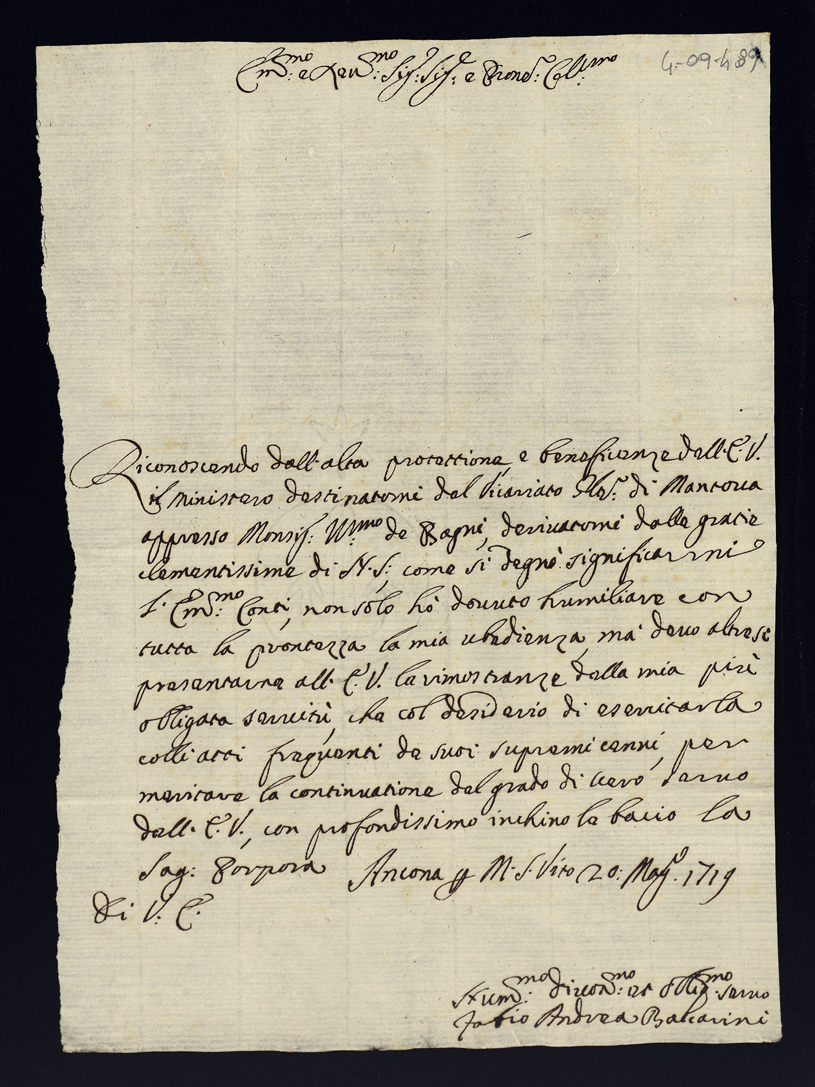 4-09-489
Em:mo e Rev:mo Sig:r Sig:re e Pron: Coll:mo
Riconoscendo dall'alta protettione, e beneficenze dell'E.V.
il Ministero destinatomi del Vicariato di Mantova
appresso Monsig: Ill:mo de Bagni, derivatomi dalle gratie
clementissime di N.S:, come si degnò significarmi
l'Em:mo Conti, non solo hò dovuto humiliare con
tutta la prontezza la mia ubedienza, mà devo altresi
presentarne all'E.V. le rimostranze della mia più
obligata servitù, che col desiderio di esercitarla
colli atti frequenti de suoi supremi cenni, per
meritare la continuatione del grado di vero servo
dell'E.V., con profondissimo inchino le bacio la
Sag: Porpora Ancona p M. S. Vito 20: Mag:o 1719
Di V: E.
Hum:mo Divot:mo et Oblig:mo servo
Fabio Andrea Balcarini